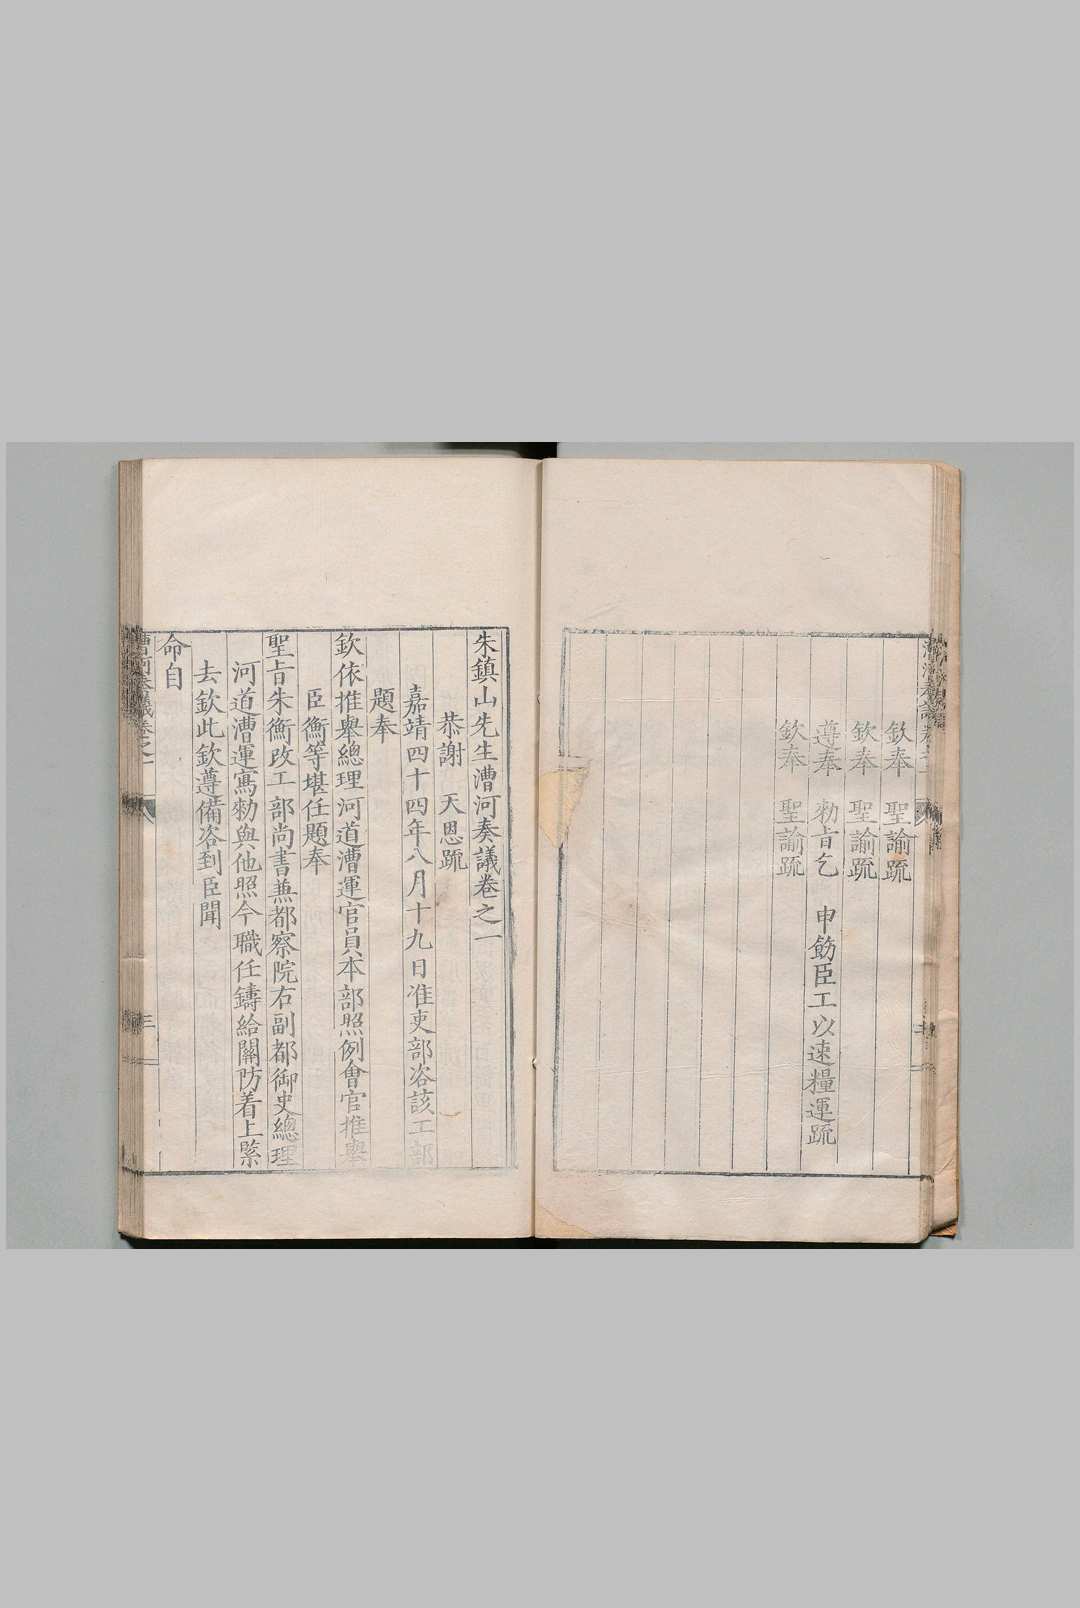 欽奉　聖諭疏
欽奉　聖諭疏
遵奉　勑旨乞　申飭臣工以速糧運疏
欽奉　聖諭疏
朱鎮山先生漕河奏議卷之一
恭謝　天恩疏
嘉靖四十四年八月十九日准吏部咨該工部
題奉
欽依推舉總理河道漕運官員本部照例會官推舉
臣衡等堪任題奉
聖旨朱衡改工部尚書兼都察院右副都御史總理
河道漕運寫勑與他照今職任鑄給關防着上緊
去欽此欽遵備咨到臣聞
命自